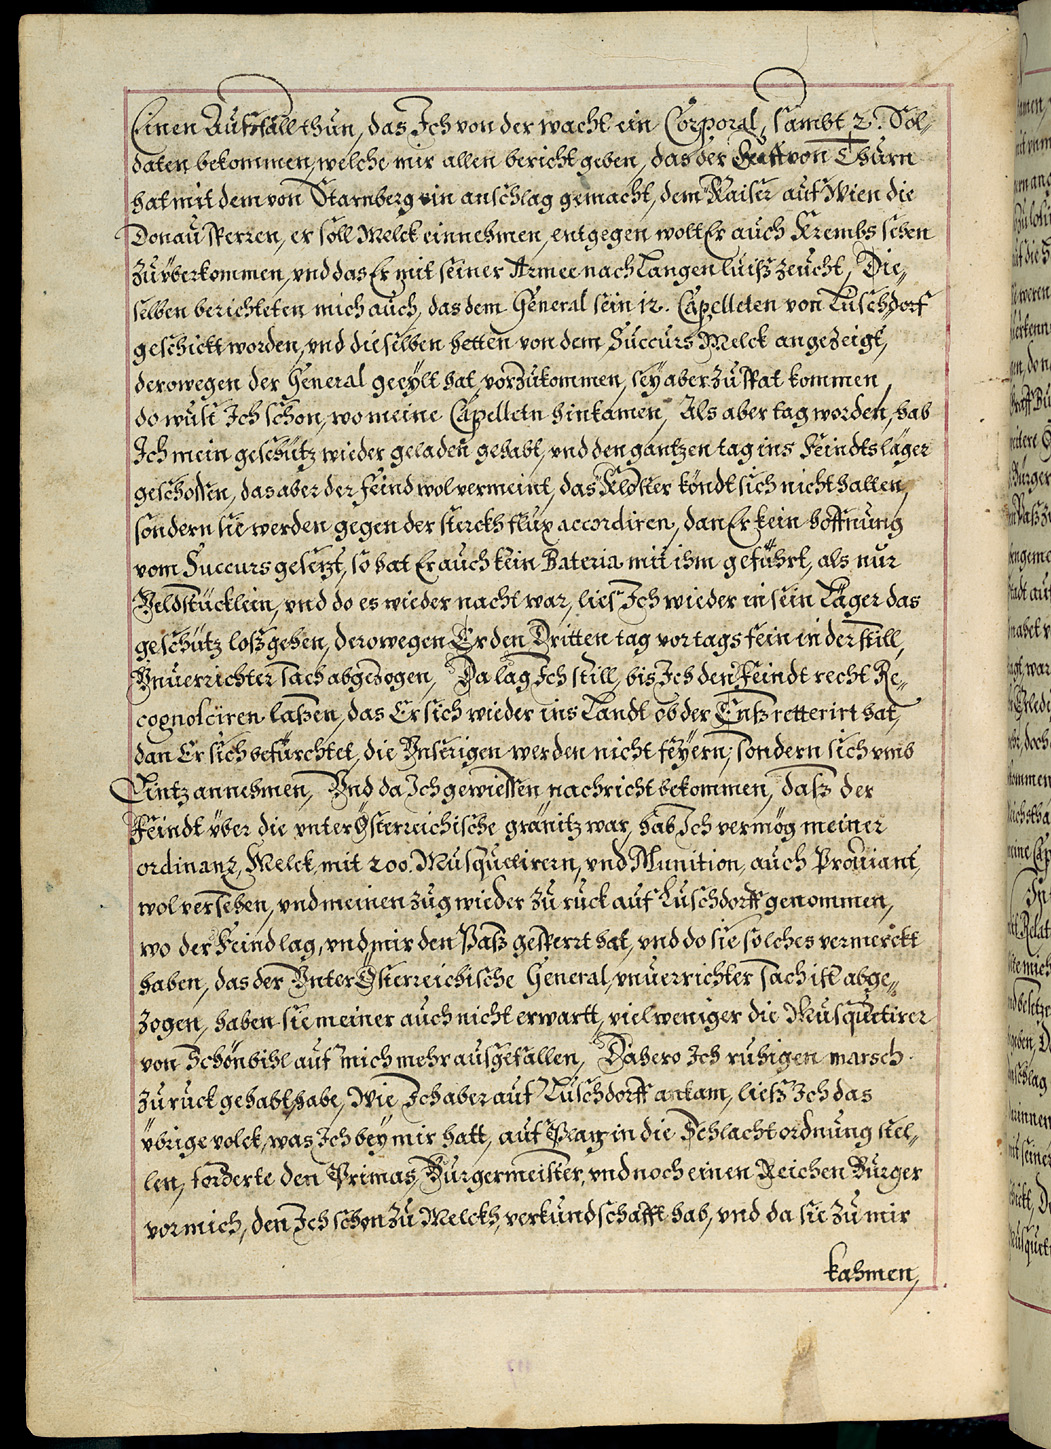 Einen Außfall thun, das Ich von der wacht ein Corporal, sambt 2. Sol=
daten bekommen, welche mir allen bericht geben, das der Graff von Thurn
hat mit dem von Starnberg ein anschlag gemacht, dem Kaiser auf Wien die
Donau sperren, er soll Melck einnehmen, entgegen wolt Er auch Krembs sehen
zu überkommen, und das Er mit seiner Armee nach Langenluiß zeücht, Die=
selben berichteten mich auch, das dem General sein 12. Capelleten von Luschdorf
geschickt worden, und dieselben hetten von dem Succurs Melck angezeigt,
derowegen der General geeylt hat, vorzukommen, sey aber zu spat kommen,
do wust Ich schon, wo meine Capelletn hinkamen, Als aber tag worden, hab
Ich mein geschütz wieder geladen gehabt, und den gantzen tag ins Feindts läger
geschossen, das aber der feind wol vermeint, das Kloster köndt sich nicht halten,
sondern sie werden gegen der sterckh flux accordiren, dan Er kein hoffnung
vom Succurs gesetzt, so hat Er auch kein Bateria mit ihm geführt, als nur
Veldstücklein, und do es wieder nacht war, lies Ich wieder in sein Läger das
geschütz loßgehen, derowegen Er den Dritten tag vor tags fein in der still,
Vnuerrichter sach abgezogen, Da lag Ich still, bis Ich den Feindt recht Re=
cognosciren laßen, das Er sich wieder ins Landt ob der Enß retterirt hat,
dan Er sich befürchtet, die Vnserigen werden nicht feyern, sondern sich vmb
Lintz annehmen, Vnd da Ich gewiessen nachricht bekommen, daß der
Feindt über die vnter Österreichische gränitz war, hab Ich vermög meiner
ordinanz, Melck mit 200. Musquetirern, vnd Munition, auch Prouiant,
wol versehen, vnd meinen zug wieder zu ruck auf Luschdorff genommen,
wo der Feind lag, vnd mir den Paß gesperrt hat, vnd do sie solches vermerckt
haben, das der Vnter Österreichische General, vnuerrichter sach ist abge=
zogen, haben sie meiner auch nicht erwartt, viel weniger die Musquetirer
von Schönbihl auf mich mehr ausgefallen, Dahero Ich ruhigen marsch
zu ruck gehabt habe, Wie Ich aber auf Luschdorff ankam, ließ Ich das
übrige volck, was Ich bey mir hatt, auf Plaz in die Schlachtordnung stel=
len, forderte den Primas, Burgermeister, vnd noch einen Reichen Burger
vor mich, den Ich schon zu Melckh, verkundschafft hab, vnd da sie zu mir
kahmen,